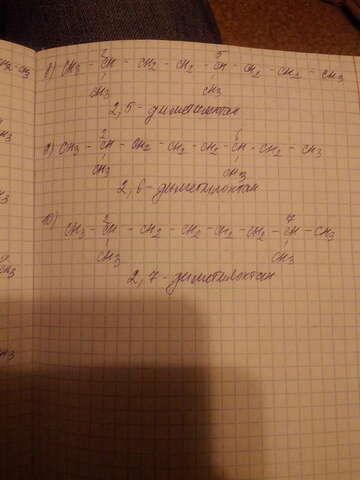 2 5
8) CH3 - CH - CH2 - CH2 - CH - CH2 - CH2 - CH3
CH3 CH3
2,5 - диметилоктан
2 6
9) CH3 - CH - CH2 - CH2 - CH2 - CH - CH2 - CH3
CH3 CH3
2,6 - диметилоктан
10) 2 7
CH3 - CH - CH2 - CH2 - CH2 - CH2 - CH - CH3
CH3 CH3
2,7 - диметилоктан